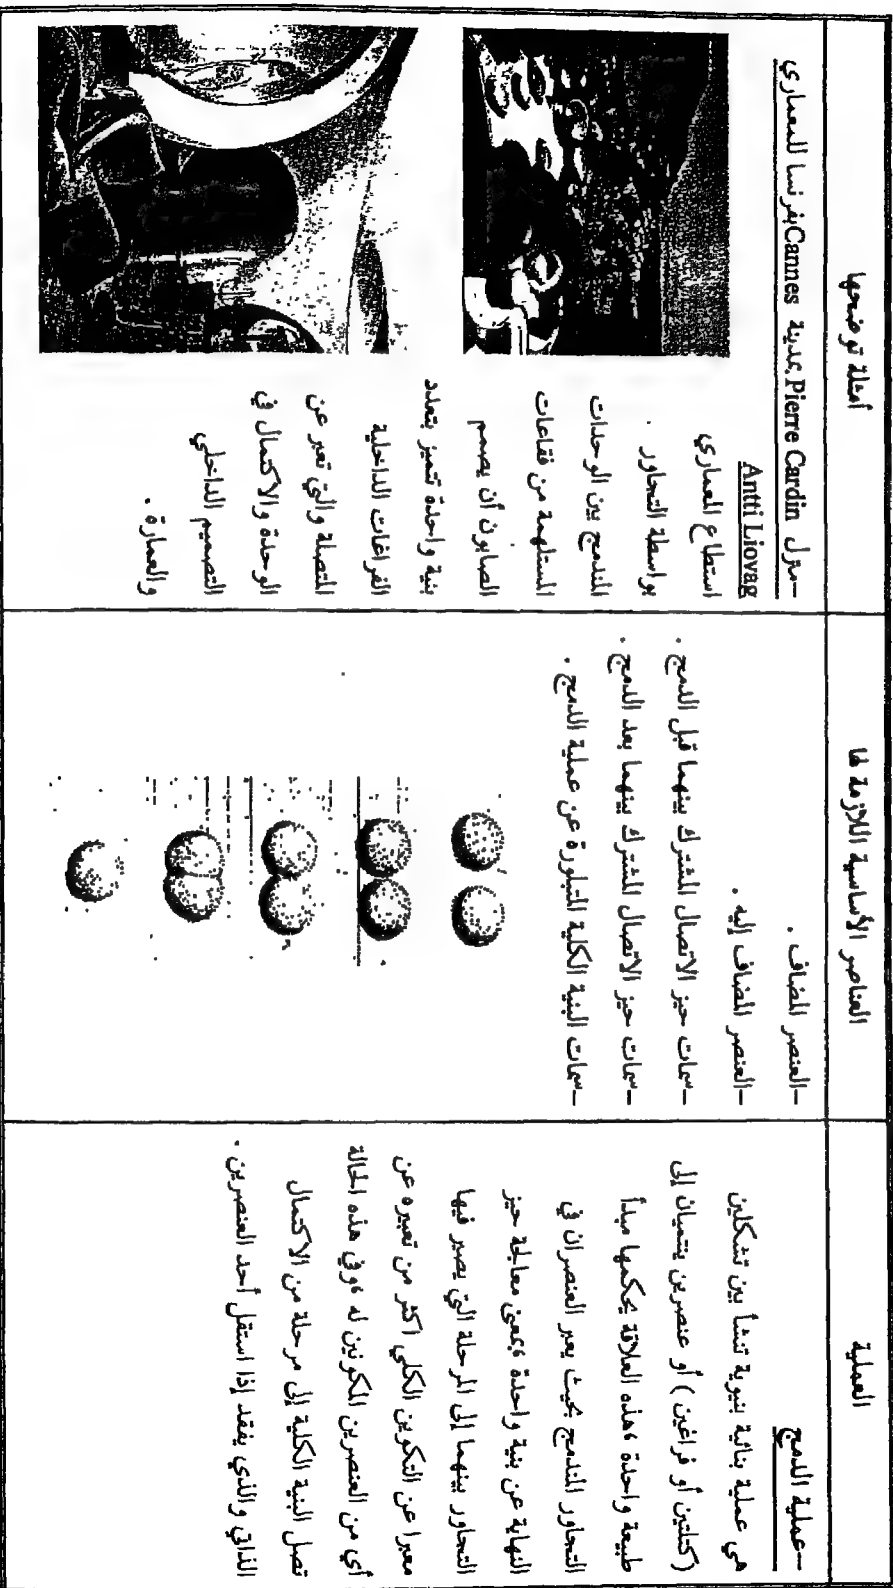 العملية
-عملية الدمج
هي عملية بنائية بنيوية تنشأ بين تشكلين
(كتلتين أو فراغين) أو عنصرين ينتميان إلى
طبيعة واحدة ،هذه العلاقة يحكمها مبدأ
التجاور المندمج بحيث يعبر العنصران في
النهاية عن بنية واحدة ،بمعنى معالجة حيز
التجاور بينهما إلى المرحلة التي يصير فيها
معبرا عن التكوين الكلي اكثر من تعبيره عن
أي من العنصرين المكونين له ،وفي هذه الحالة
تصل البنية الكلية إلى مرحلة من الاكتمال
الذاتي والذي يفقد إذا استقل أحد العنصرين .
العناصر الأساسية اللازمة لها
-العنصر المضاف .
-العنصر المضاف إليه .
-سمات حيز الاتصال المشترك بينهما قبل الدمج .
-سمات حيز الاتصال المشترك بينهما بعد الدمج .
-سمات البنية الكلية المتبلورة عن عملية الدمج .
أمثلة توضحها
-منزل Pierre Cardin بمدينة Cannes بفرنسا للمعماري
Antti Liovag
استطاع المعماري
بواسطة التجاور .
المندمج بين الوحدات
المستلهمة من فقاعات
الصابون أن يصمم
بنية واحدة تتميز بتعدد
الفراغات الداخلية
المتصلة والتي تعبر عن
الوحدة والاكتمال في
التصميم الداخلي
والعمارة .